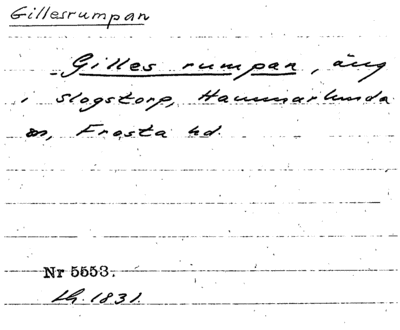 Gillesrumpan
Gilles rumpan, äng
i Slogstorp, Hammarlunda
sn, Frosta hd.
Nr 5553.
Lh. 1831.